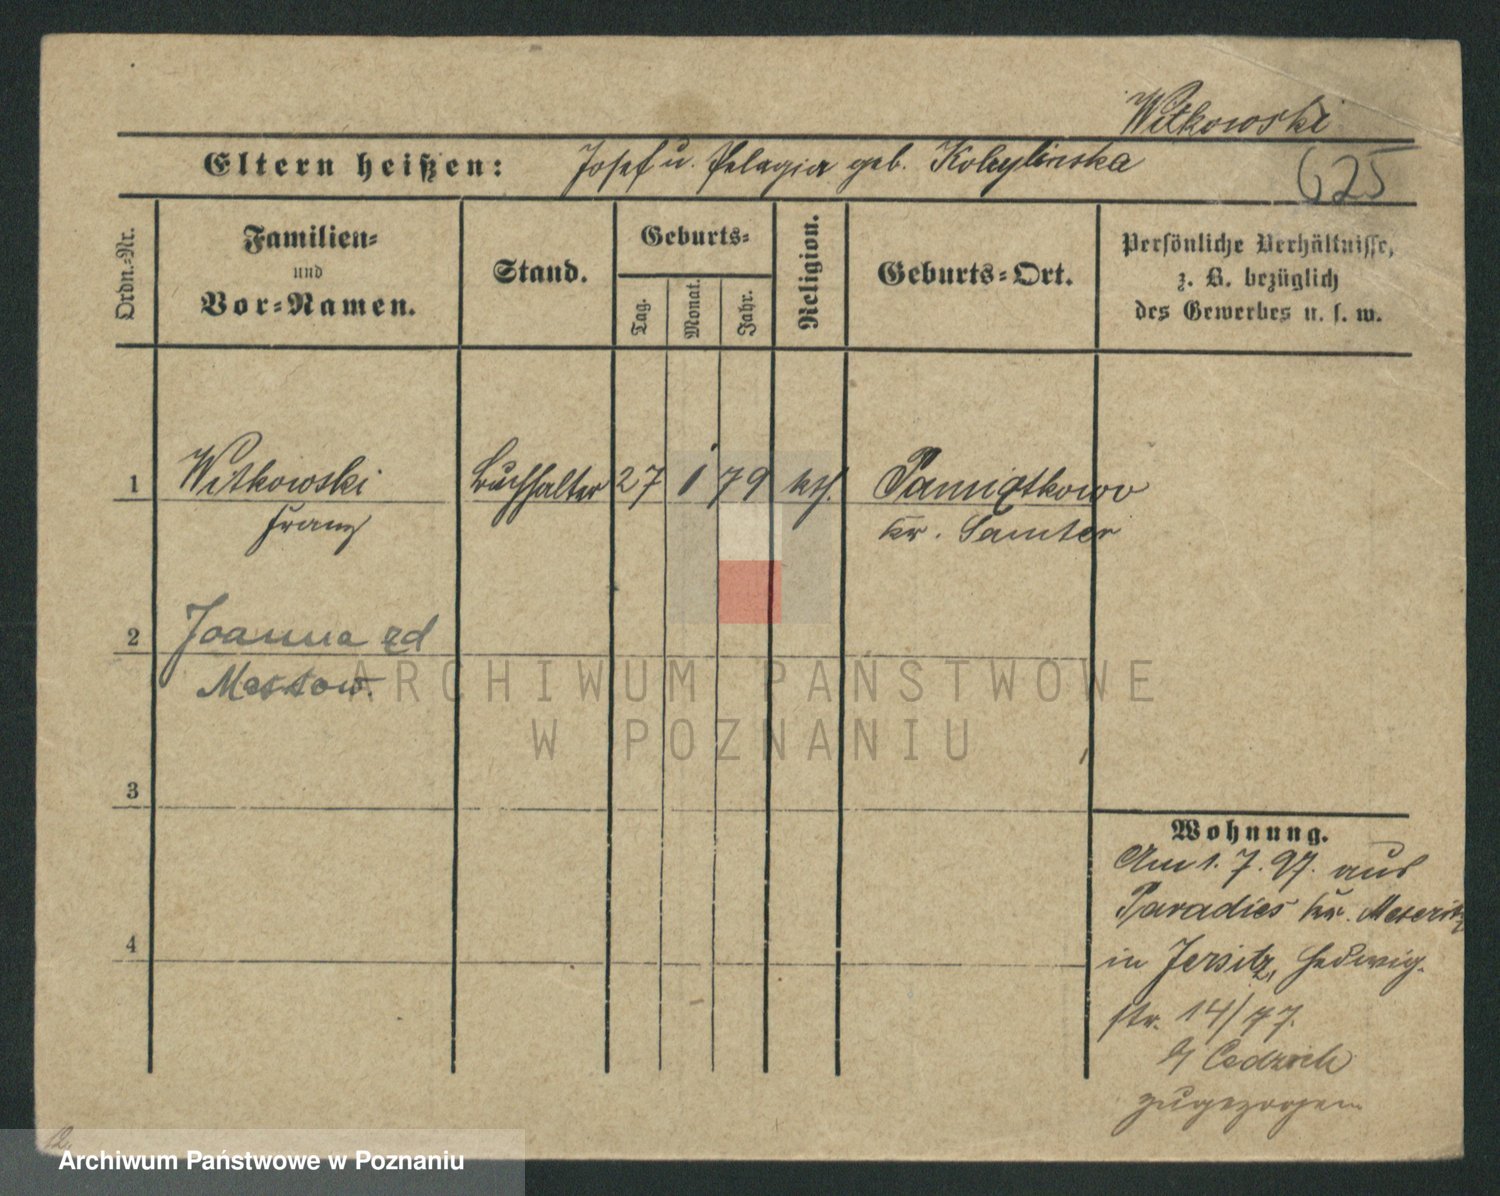 Witkowski
Eltern heißen: Josef u. Pelagia geb. Kobylinska
625
Ordn.=Nr.
Familien=
und
Vor=Namen.
Stand.
Geburts=
Tag.
Monat.
Jahr.
Religion.
Geburts=Ort.
Persönliche Verhältnisse,
z. B. bezüglich
des Gewerbes u. s. w.
1 Witkowski Buchhalter 27 1 79 kth. Pamiątkowo
Franz Kr. Samter
2 Joanna zd
ARCHIWUM PAŃSTWOWE
W POZNANIU
3
Wohnung.
Am 1. 7. 97. aus
Paradies Kr. Meseritz
4
in Jersitz, Hedwig-
str. 14/
zugezogen
Archiwum Państwowe w Poznaniu